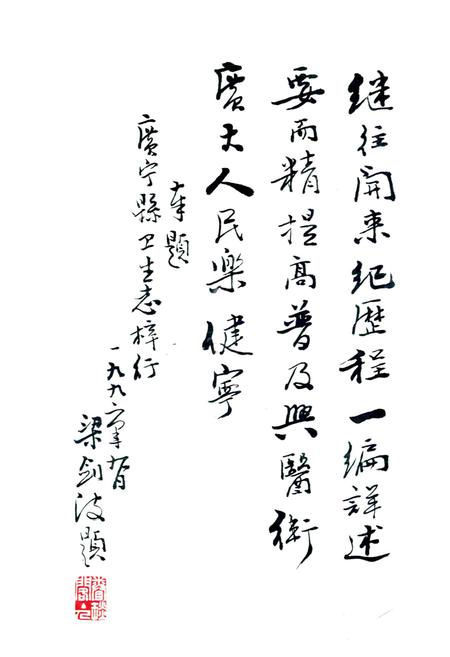 继往開来纪歷程一编詳述
要而精提高普及興醫術
廣大人民樂健寧
奉題
廣宁縣卫生志梓行
一九九六年九月
梁剑波題